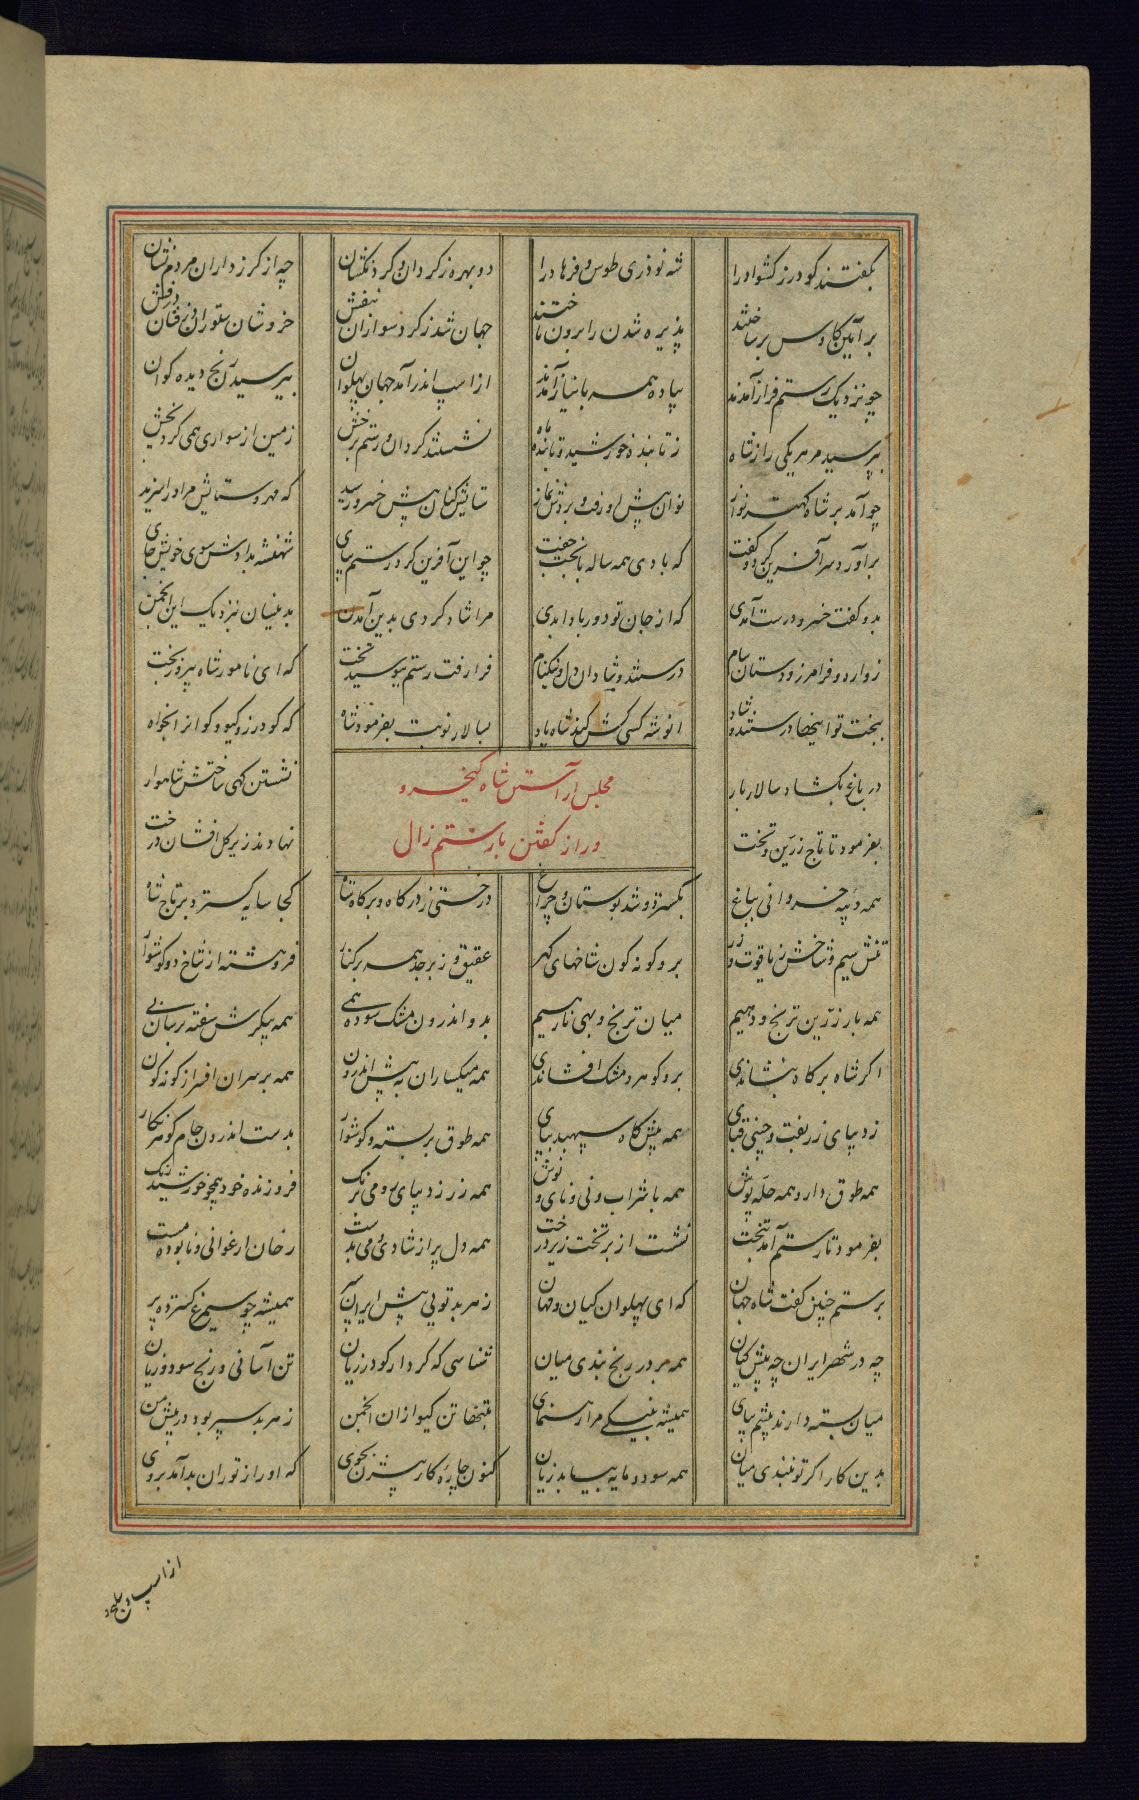 بگفتند گودرز گشواد را شه نوذری طوس و فرهاد را دو بهره ز گردان و گردنکشان چه از گرزداران مردم نشان
بر آیین کاوس برساختند پذیره شدن را برون تاختند جهان شد ز گرد سواران بنفش خروشان ستوران و زرفشان درفش
چو نزدیک رستم فراز آمدند پیاده همه با نیاز آمدند از اسپ اندر آمد جهان پهلوان بپرسید رنج دیده گوان
بپرسید مر هر یکی را ز شاه ز تابنده خورشید و تابنده ماه نشستند گردان و رستم برخش زمین از سواری همی کرد بخش
چو آمد بر شاه کهتر نواز نوان پیش او رفت و بردش نماز ستایش کنان پیش خسرو رسید که مهر و ستایش مر او را سزید
برآورد سر آفرین کرد و گفت که بادی همه ساله با بخت جفت چو این آفرین کرد رستم بپای شهنشه بدادش سوی خویش جای
بدو گفت خسرو درست آمدی که از جان تو دور بادا بدی مرا شاد کردی بدین آمدن بدینسان نزدیک این انجمن
زواره و فرامرز و دستان سام درستند و شادان دل و نیکنام فرا رفت رستم ببوسید تخت که ای نامور شاه پیروزبخت
ببخت تو اینجا درستند و شاد انوشه کسی کش کند شاه یاد بسالار نوبت بفرمود شاه که گودرز و گیو و گوان را بخواه
مجلس آراستن شاه کیخسرو
و راز گفتن با رستم زال
در باغ بگشاد سالار بار نشستن گهی ساختش شاهوار
بفرمود تا تاج زرین و تخت نهادند زیر گل افشان درخت
همه دیبه خسروانی بباغ بگسترد و شد بوستان چو چراغ درختی زدر گاه و بر گاه شاه کجا سایه گسترد بر تاج شاه
تنش سیم و شاخش ز یاقوت و زر برو گونه گون شاخهای گهر عقیق و زبرجد همه برگ و بار فروهشته از شاخ دو گوشوار
همه بار زرین ترنج و بهی میان ترنج و بهی بدو اندرون مشک سوده همی همه پیکرش سفته برسان نی
اگر شاه بر گاه بنشاندی برو گوهر و مشک افشاندی همه میگساران به پیش اندرون همه بر سران افسر از گونه گون
ز دیبای زربفت و چینی قبای همه پیش گاه سپهبد بپای همه طوق بربسته و گوشوار بدست اندرون جام گوهر نگار
همه طوق دار و همه حله پوش همه با شراب و نی و نای و نوش همه زر ز دیبای رومی برنگ فروزنده خود همچو خورشید رنگ
بفرمود تا رستم آمد بتخت نشست از بر تخت زیر درخت همه دل پر از شادی و می بدست رخان ارغوانی و نابوده مست
برستم چنین گفت شاه جهان که ای پهلوان کیان و مهان ز هر بد تویی پیش ایران سپر همیشه چو سیمرغ گسترده پر
چه در شهر ایران چه پیش کیان همه مر در رنج بندی میان شناسی که کردار گودرزیان تن آسانی و رنج سود و زیان
میان بسته دارند پیشم بپای همیشه بنیکی مرا رهنمای بتنها تن گیو از آن انجمن ز هر بد سپر بود در پیش من
بدین کار اگر تو نبندی میان همه سود و مایه بیاید زیان کنون چاره کار بیژن بجوی که او را ز توران بد آمد بروی
از اسپ و